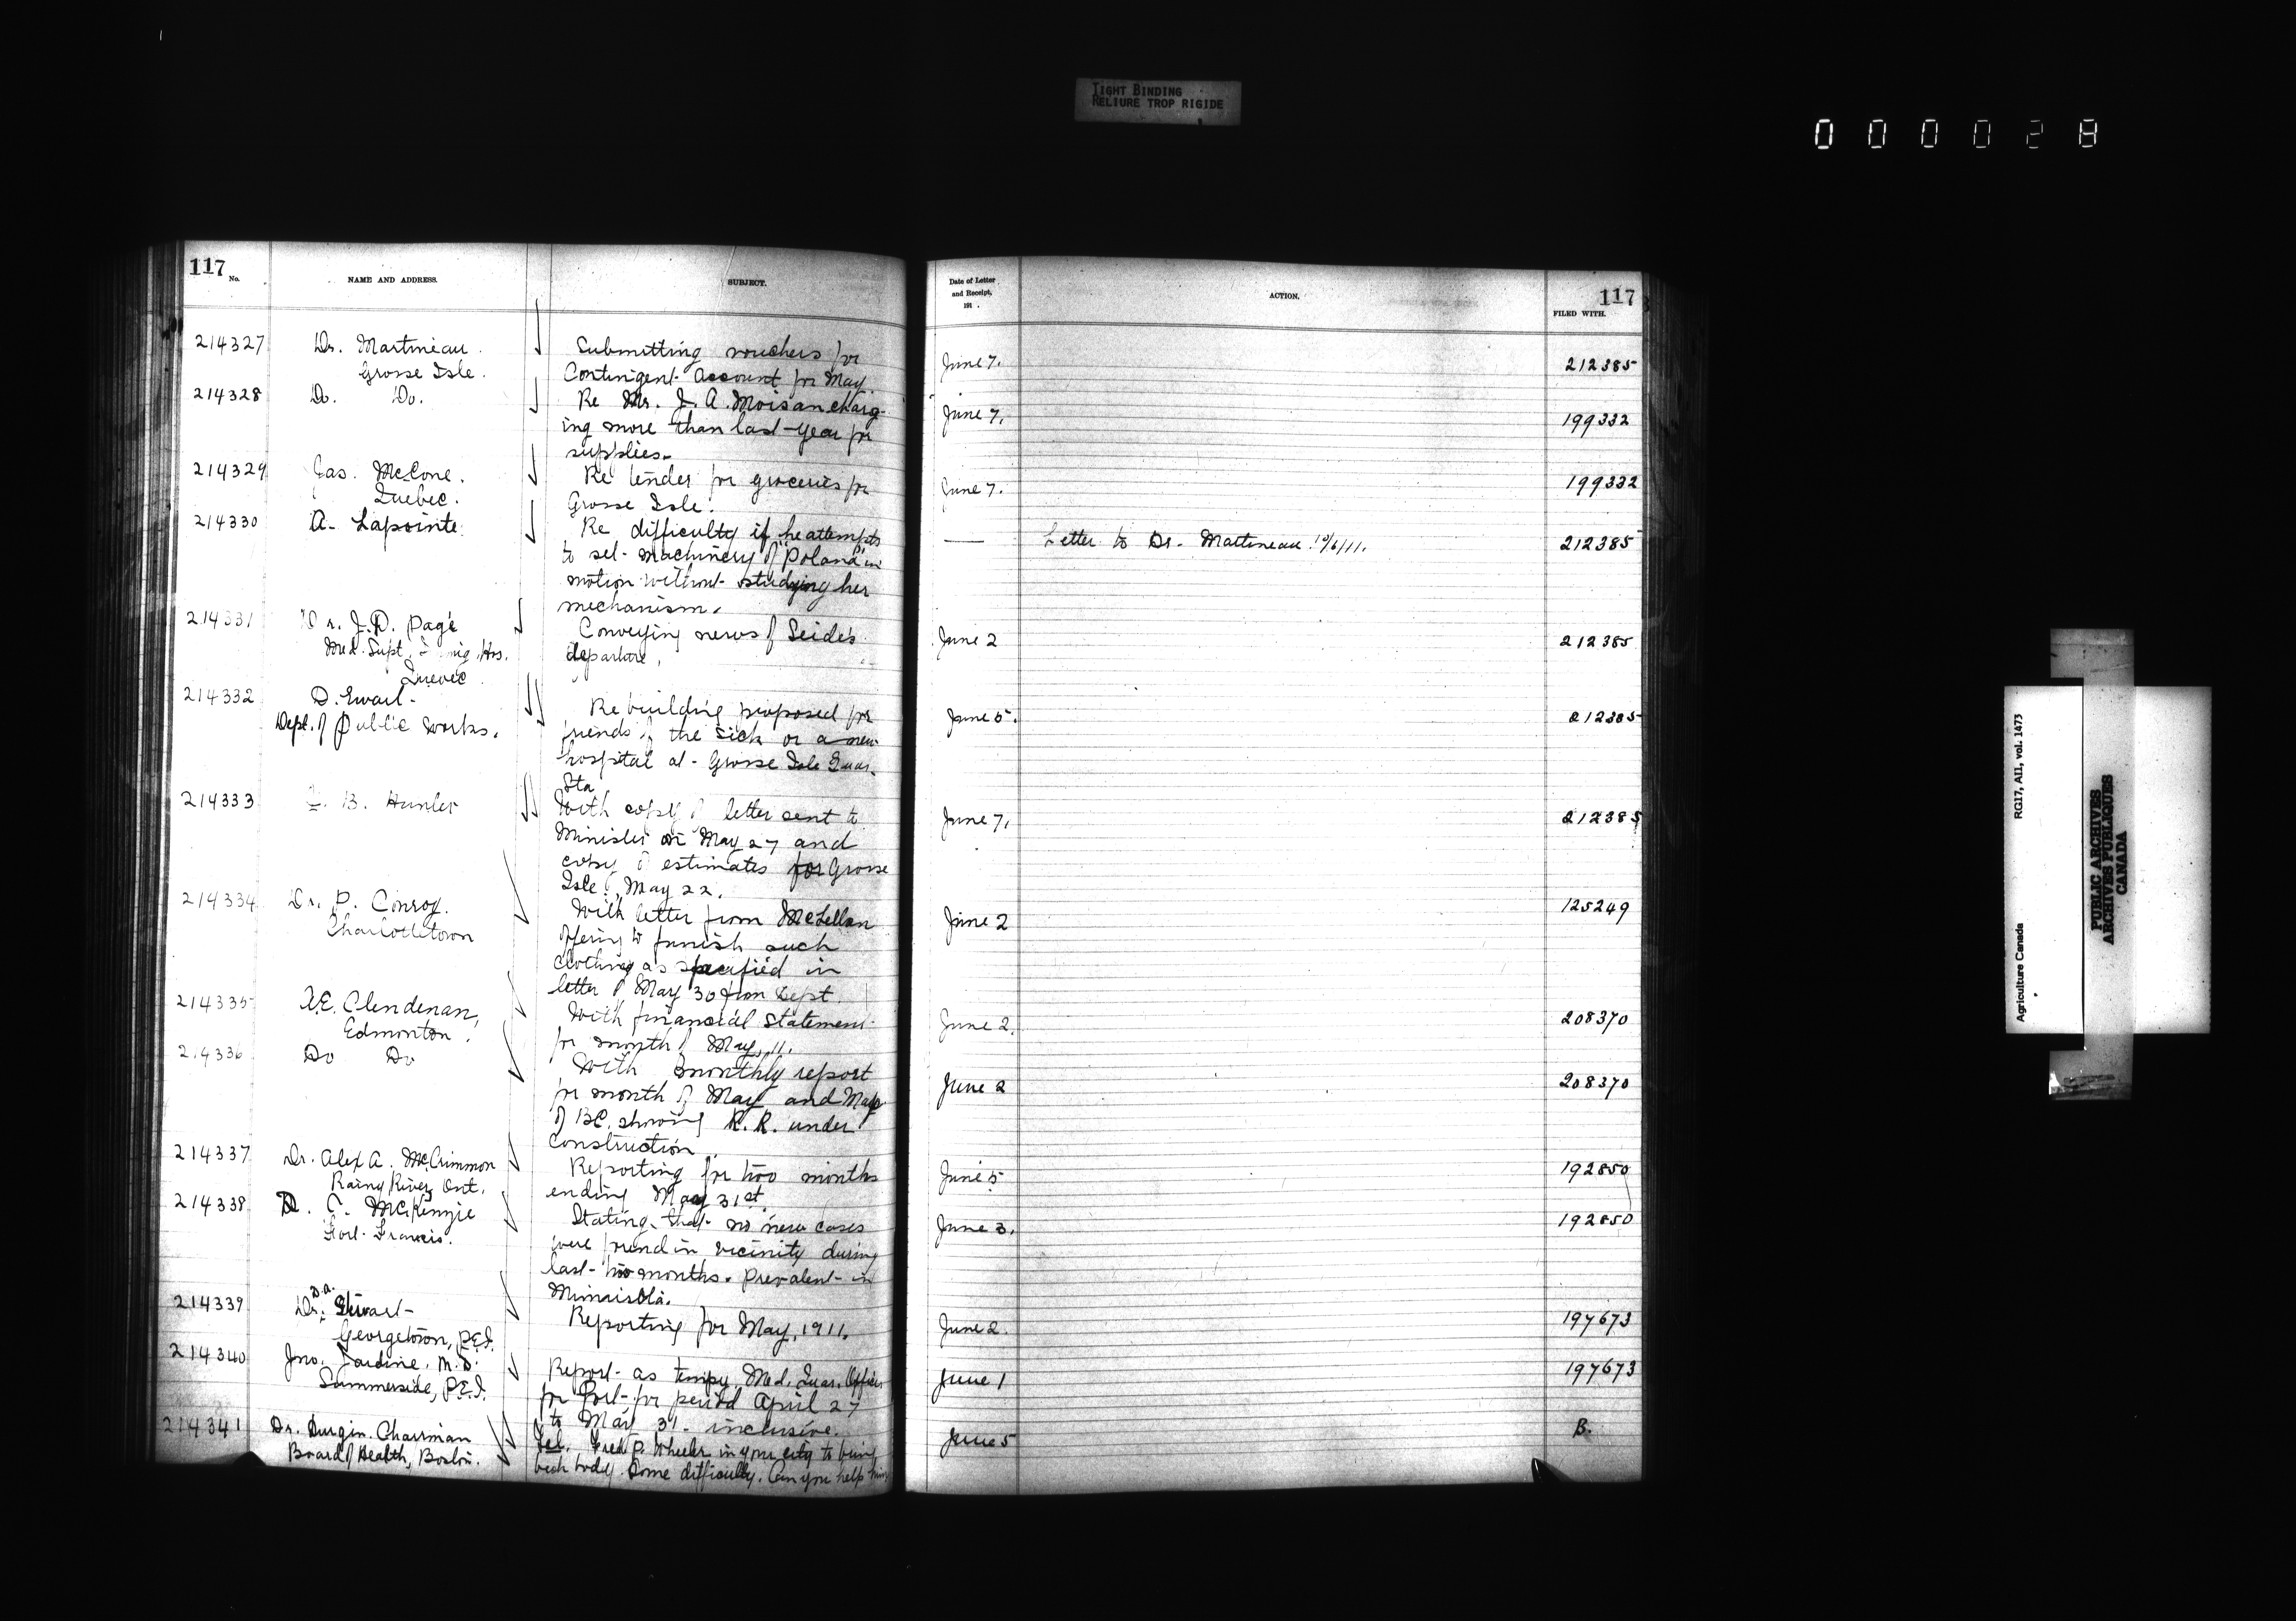 TIGHT BINDING
RELIURE TROP RIGIDE
000028
117
No.
NAME AND ADDRESS.
SUBJECT.
214327
Dr. Martineau.
Grosse Isle.
Submitting vouchers for
Contingent Account for May.
214328
Do. Do.
Re Mr. J. A. Moisan charg-
ing more than last year for
supplies.
214329
Jas. McCone.
Quebec.
Re tender for groceries for
Grosse Isle.
214330
A. Lapointe
Re difficulty if he attempts
to set machinery of "Poland" in
motion without studying her
mechanism.
214331
Dr. J.D. Pagé
Med. Supt. Immig. Hos.
Quebec.
Conveying news of Seide's
departure.
214332
D. Ewart
Dept. of Public Works.
Re building proposed for
friends of the sick or a new
hospital at Grosse Isle Quar.
Sta
214333
B. Hunter
With copy of letter sent to
Minister on May 27 and
copy of estimates for Grosse
Isle, May 22.
214334
Dr. P. Conroy.
Charlottetown
With letter from McLellan
offering to furnish such
clothing as specified in
letter of May 30 from Dept.
214335
A.E. Clendenan,
Edmonton.
With financial statement
for month of May, 11.
214336
Do Do
With monthly report
for month of May and Map
of B.C. showing R. R. under
construction.
214337
Dr. Alex A. McCrimmon
Rainy River, Ont.
Reporting for two months
ending May 31st.
214338
D. C. McKenzie
Fort Francis.
Stating that no new cases
were found in vicinity during
last two months. Prevalent in
Minnisota.
214339
Dr. D.A. Stewart
Georgetown, P.E.I.
Reporting for May, 1911.
214340
Jno. Jardine, M.D.
Summerside, P.E.I.
Report as tempy. Med. Quar. Officer
for Port for period April 27
to May 31 inclusive.
214341
Dr. Durgin Chairman
Board of Health, Boston.
Tel. Fred P. Wheeler in your city to bring
back body. Some difficulty. Can you help him
Date of Letter
and Receipt,
191 .
ACTION.
117
FILED WITH.
June 7.
212385
June 7.
199332
June 7.
199332
— Letter to Dr. Martineau 10/6/11.
212385
June 2
212385
June 5.
212385
June 7.
212385
June 2
125249
June 2.
208370
June 2
208370
June 5
192850
June 3.
192850
June 2.
197673
June 1
197673
June 5
B.
Agriculture Canada
RG17, AII, vol. 1473
PUBLIC ARCHIVES
ARCHIVES PUBLIQUES
CANADA